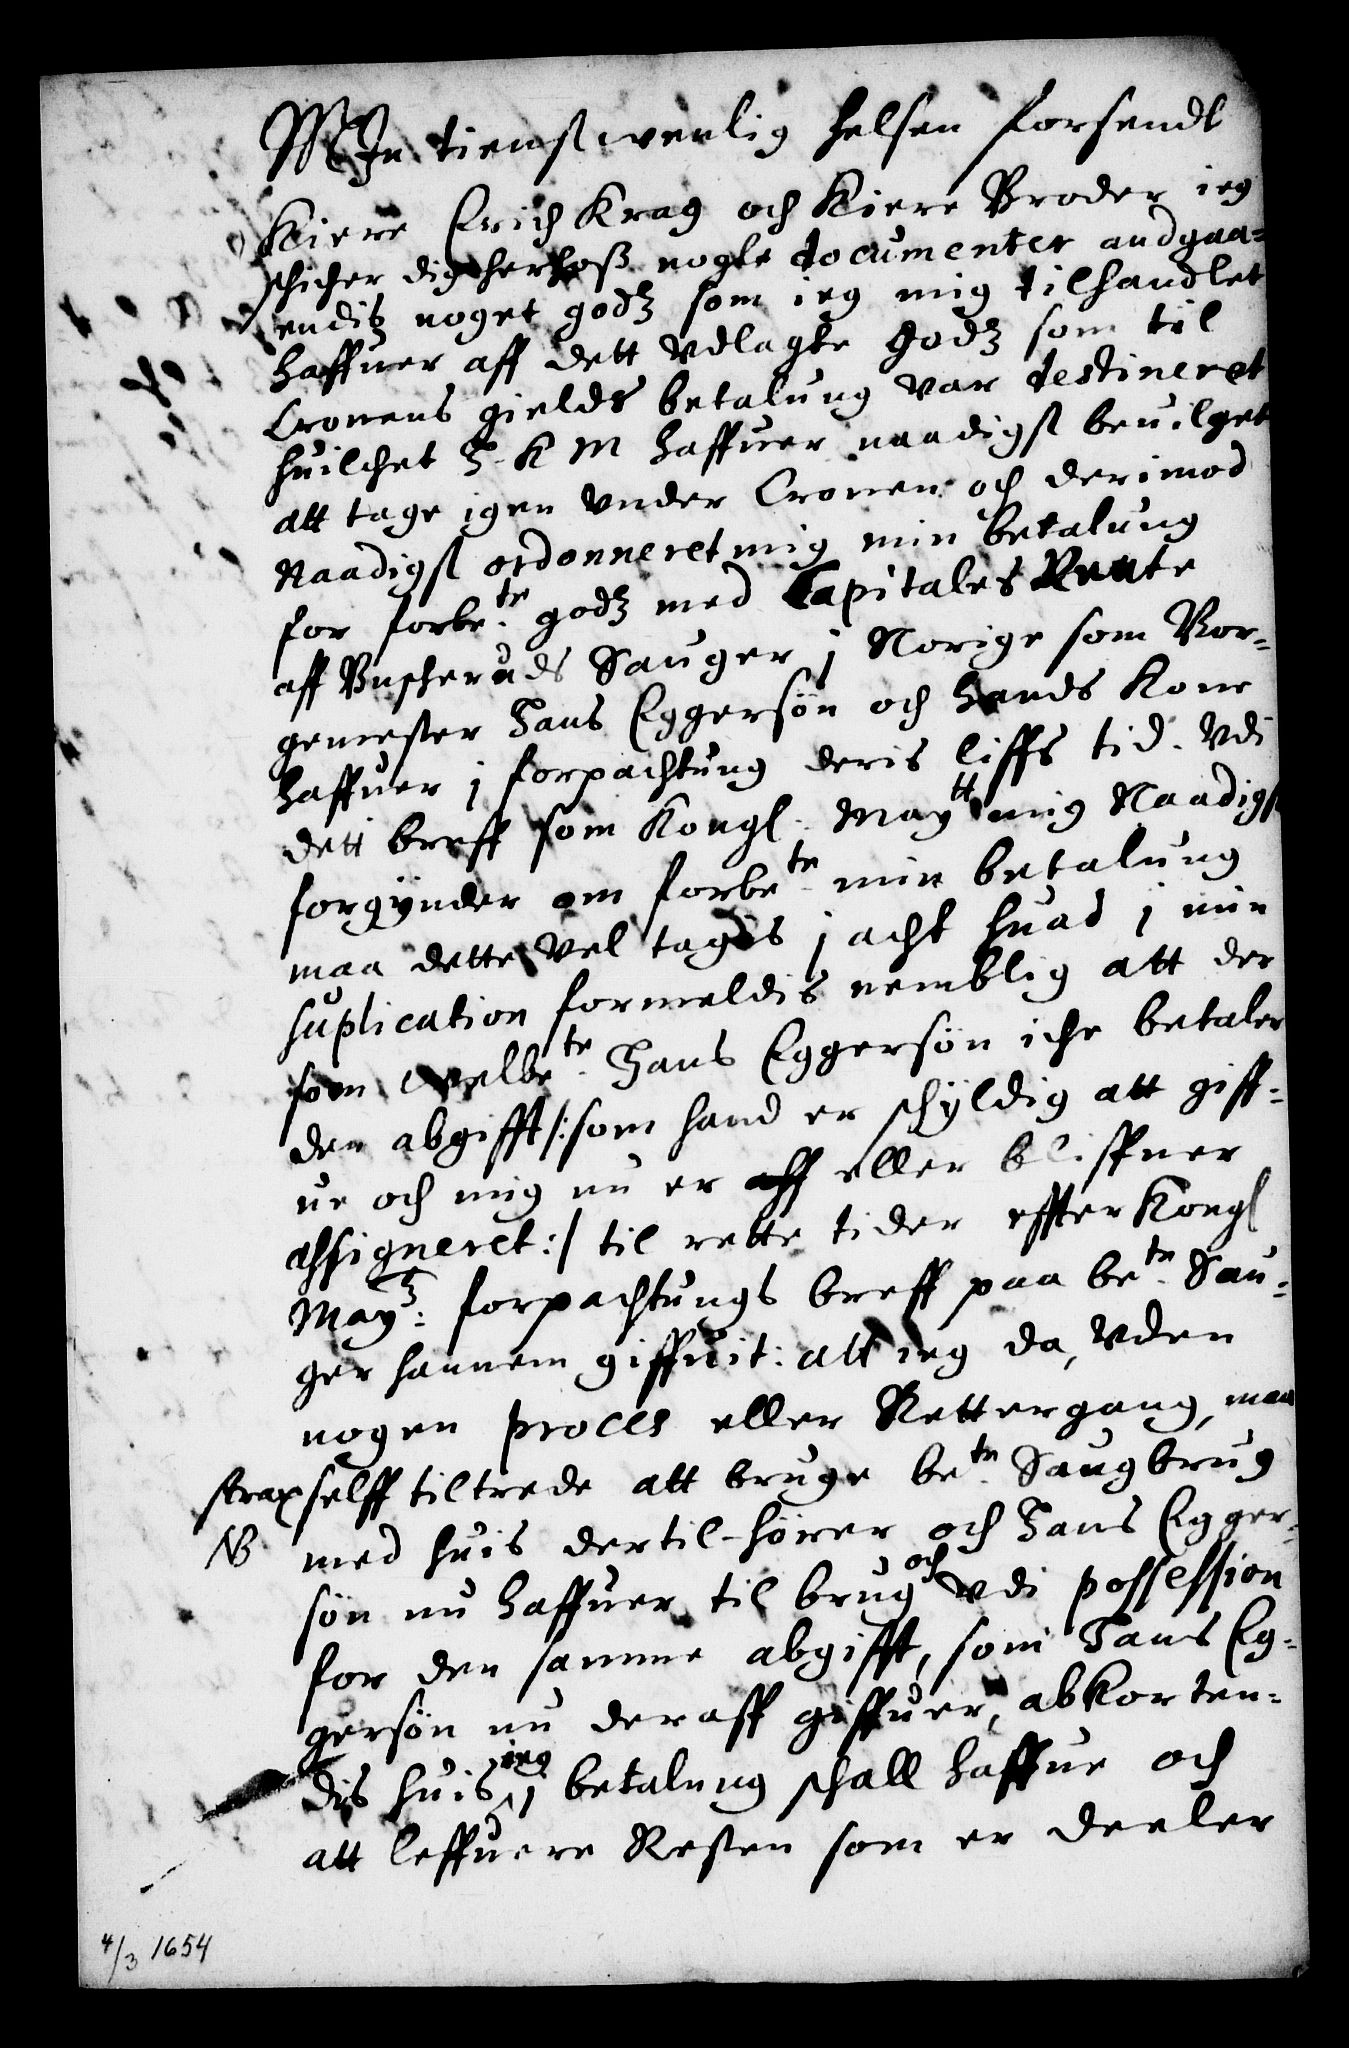 Min tienstwenlig helsen forsendt
Kiere Erich Krag och Kiere Broder ieg
schicher dig herhoß nogle documenter andgaa=
endis noget godz som ieg mig tilhandlet
haffuer aff dett Vdlagte godz som til
Cronens gields betalung var destineret
huilchet H. K M haffuer naadigst beuilget
att tage igen Vnder Cronen och derimod
Naadigst ordonneret mig min betalung
for forbe.te godz med Capitales Rente
aff Buscheruds Sauger j Norige som Bor=
gemester Hans Eggersön och Hands Kone
haffuer j forpachtung deris liffs tid. Vdi
dett breff som Kongl. Maytt mig Naadigst
forgynder om forbe.te min betalung
maa dette Vel tagis j acht huad j min
suplication formeldis nemblig att der
som Velbe.te Hans Eggersön iche betaler
den abgifft /: som hand er schyldig att giff=
ue och mig nu er aff eller bliffuer
assigneret :/ til rette tider effter Kongl
Mayz: forpachtungs breff paa be.te Sau=
ger hannem giffuit: att ieg da, Vden
nogen proces eller Rettergang, maa
strax selff tiltrede att bruge be.te Saugbrug
NB med huis dertil-hörer och Hans Egger=
sön nu haffuer til brug och Vdi possession
for den samme abgifft, som Hans Eg=
gersön nu deraff giffuer, abkorten=
dis huis ieg j betalung schall haffue och
att leffuere Resten som er deeler
4/3 1654